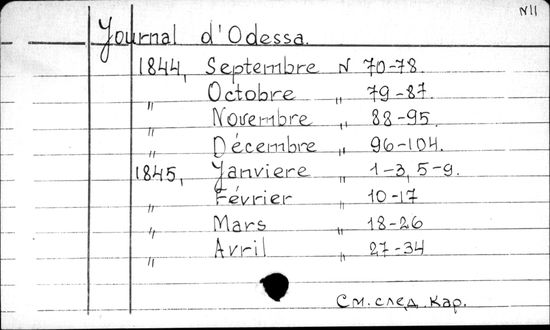 N11
Journal d'Odessa.
1844, Septembre N 70-78.
„ Octobre „ 79-87.
„ Novembre „ 88-95.
„ Décembre „ 96-104.
1845, Janviere „ 1-3, 5-9.
„ Février „ 10-17
„ Mars „ 18-26
„ Avril „ 27-34
См. след. кар.